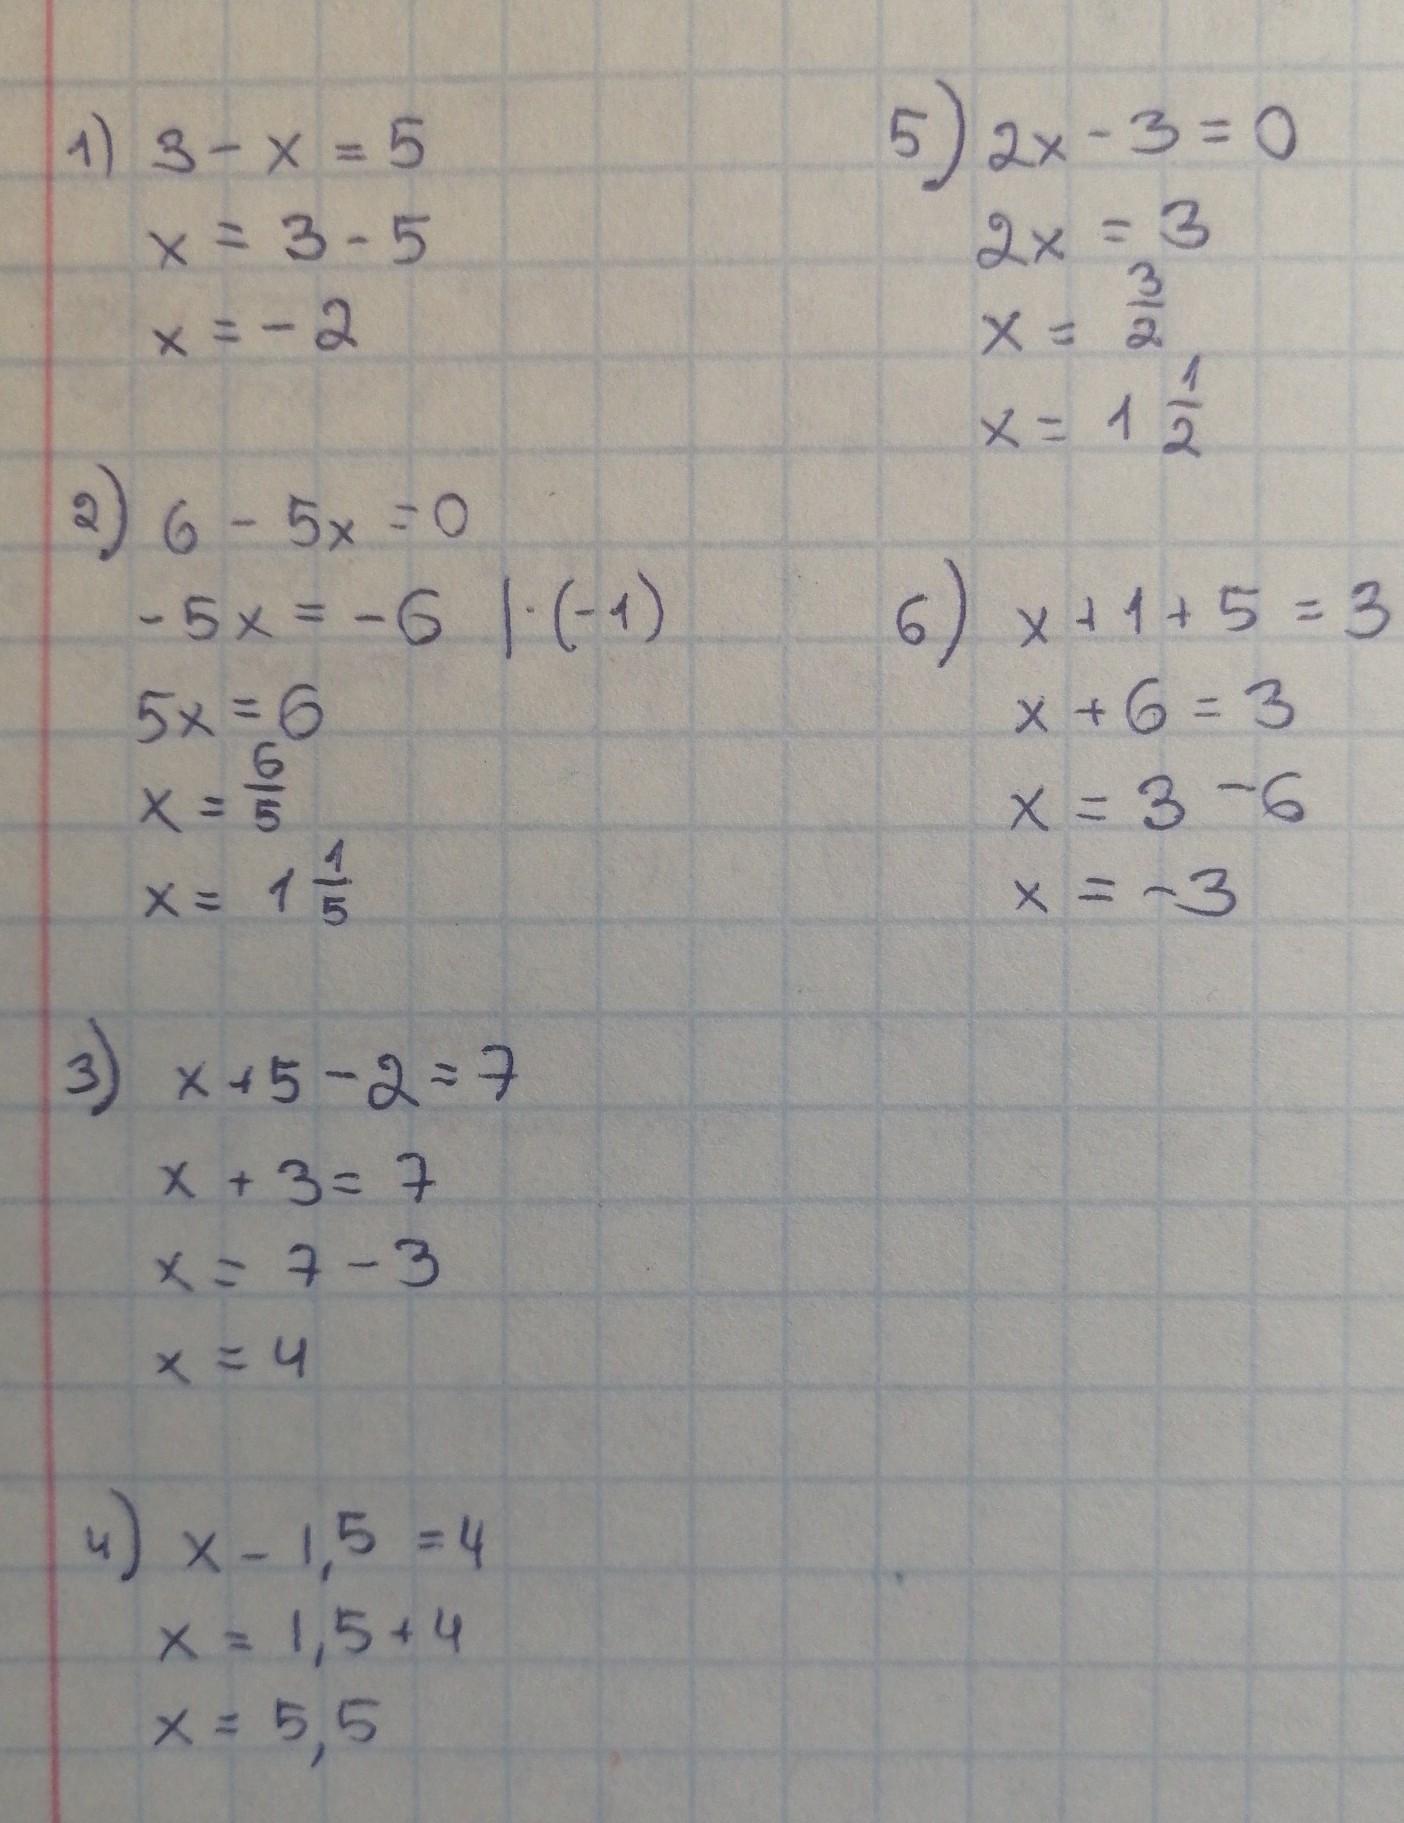 1) 3 - x = 5
x = 3 - 5
x = - 2
2) 6 - 5x = 0
- 5x = - 6 | · (-1)
5x = 6
x = 6/5
x = 1 1/5
3) x + 5 - 2 = 7
x + 3 = 7
x = 7 - 3
x = 4
4) x - 1,5 = 4
x = 1,5 + 4
x = 5,5
5) 2x - 3 = 0
2x = 3
x = 3/2
x = 1 1/2
6) x + 1 + 5 = 3
x + 6 = 3
x = 3 - 6
x = -3